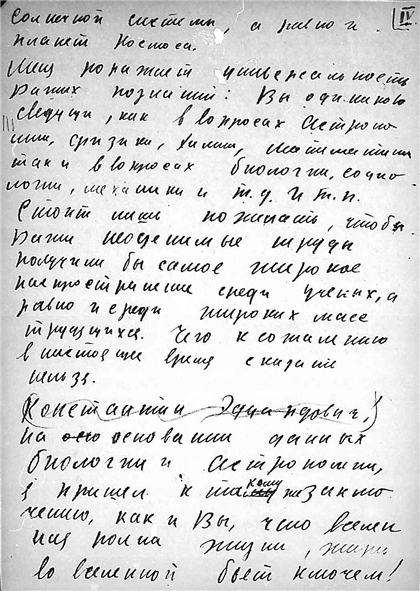 IV
солнечной системы, а равно и
планет космоса.
Меня поражает универсальность
Ваших познаний: Вы одинаково
сведущи, как в вопросах астроно-
мии, физики, химии, математики
так и в вопросах биологии, социо-
логии, механики и т.д. и т.п.
Стоит лишь пожелать, чтобы
Ваши неоценимые труды
получили бы самое широкое
распространение среди ученых, а
равно и среди широких масс
трудящихся. Чего к сожалению
в настоящее время сказать
нельзя.
(Константин Эдуардович,)
на основании данных
биологии и астрономии,
я пришел к такому же заклю-
чению, как и Вы, что вселен-
ная полна жизни, жизнь
во вселенной бьет ключем!